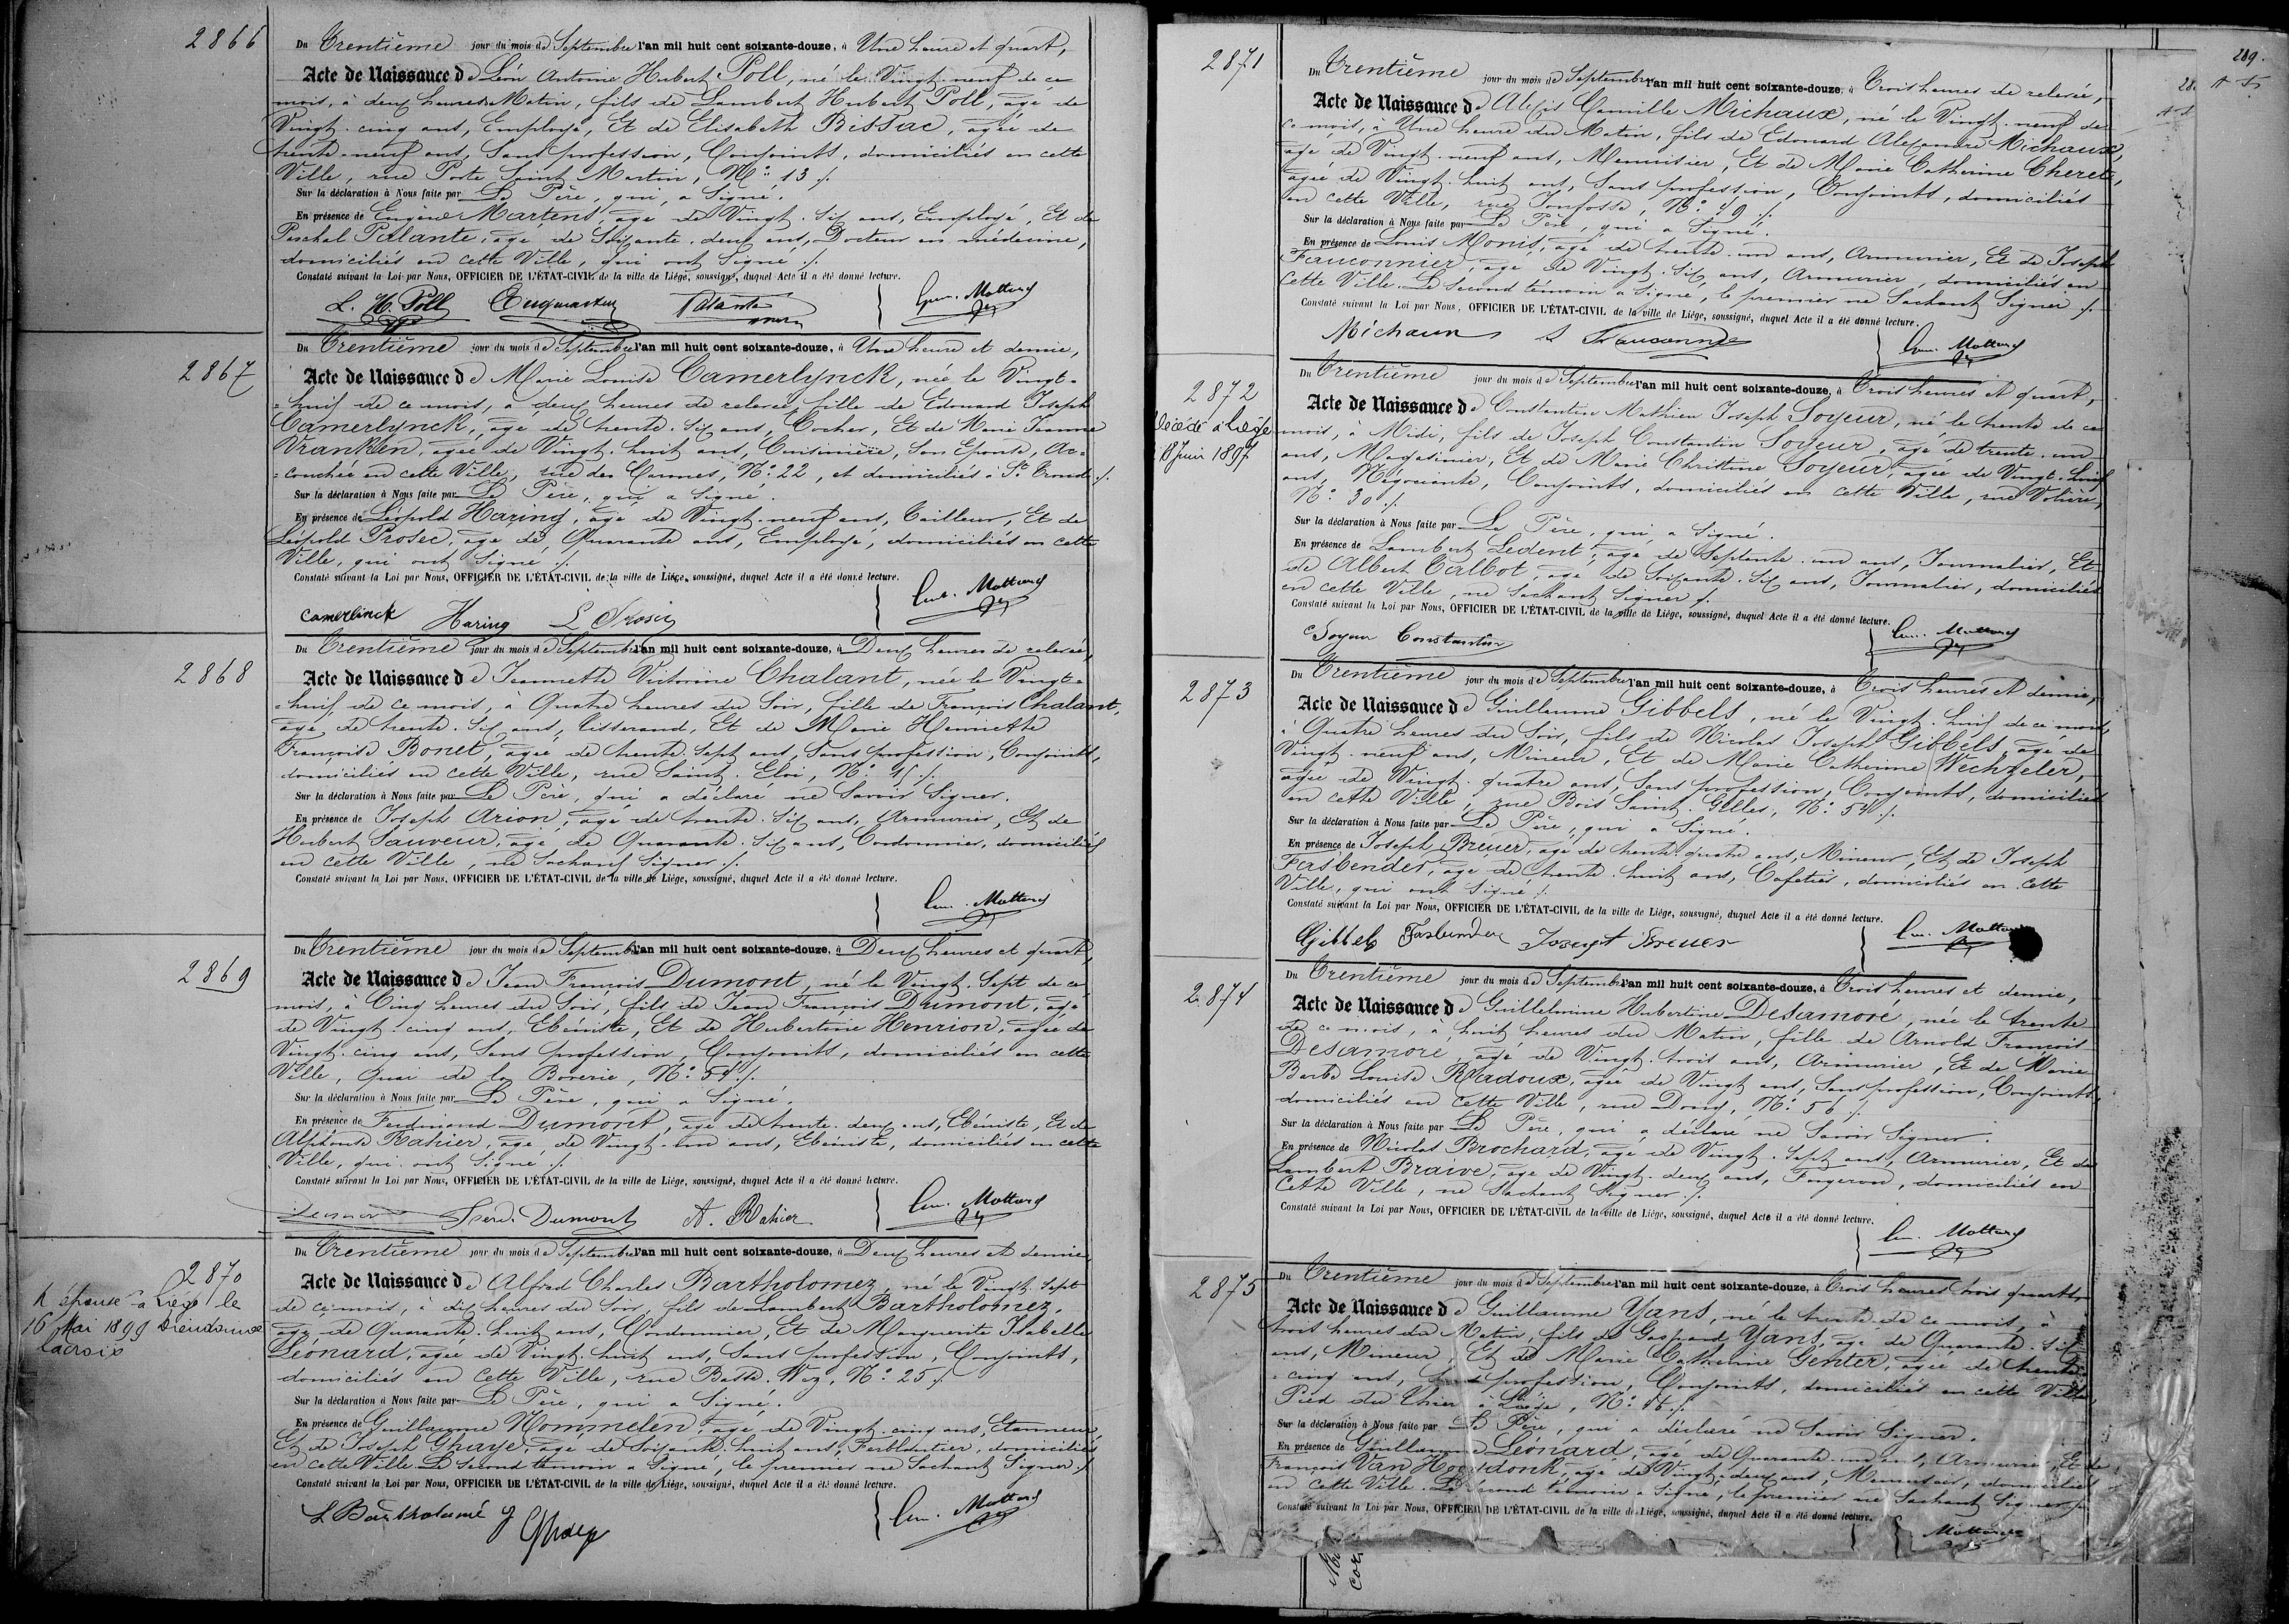 2866
Du Trentième jour du mois de Septembre l'an mil huit cent soixante-douze, à Une heure et quart,
Acte de Naissance de Léon Antoine Hubert Poll, né le Vingt-neuf de ce
mois, à deux heures Matin, fils de Lambert Hubert Poll, âgé de
Vingt-cinq ans, Employé, Et de Elisabeth Bissac, âgée de
trente-neuf ans, Sans profession, Conjoints, domiciliés en cette
Ville, rue Porte Saint Martin, N° 13 ./.
Sur la déclaration à Nous faite par Le Père, qui, a Signé.
En présence de Eugène Martens, âgé de Vingt-Six ans, Employé, Et de
Paschal Palante, âgé de Soixante-deux ans, Docteur en médecine,
domiciliés en cette Ville, qui ont Signé ./.
Constaté suivant la Loi par Nous, OFFICIER DE L'ÉTAT-CIVIL de la ville de Liége, soussigné, duquel Acte il a été donné lecture.
L. H. Poll Eug Martens Palante Mottard
2867
Du Trentième jour du mois de Septembre l'an mil huit cent soixante-douze, à Une heure et demie,
Acte de Naissance de Marie Louise Camerlynck, née le Vingt-
=huit de ce mois, à deux heures de relevée, fille de Edouard Joseph
Camerlynck, âgé de trente-Six ans, Cocher, Et de Marie Jeanne
Vranken, âgée de Vingt-huit ans, Cuisinière, Son Epouse, Ac=
=couchée en cette Ville, rue des Carmes, N° 22, et domiciliés à St Trond ./.
Sur la déclaration à Nous faite par Le Père, qui a Signé.
En présence de Léopold Haring, âgé de Vingt-neuf ans, Tailleur, Et de
Léopold Prosec, âgé de Quarante ans, Employé, domiciliés en cette
Ville, qui ont Signé ./.
Constaté suivant la Loi par Nous, OFFICIER DE L'ÉTAT-CIVIL de la ville de Liége, soussigné, duquel Acte il a été donné lecture.
Camerlinck Haring L Mottard
2868
Du Trentième jour du mois de Septembre l'an mil huit cent soixante-douze, à Deux heures de relevée,
Acte de Naissance de Jeannette Victorine Chalant, née le Vingt-
=huit de ce mois, à Quatre heures du Soir, fille de François Chalant,
âgé de trente-Six ans, Tisserand, Et de Marie Henriette
Françoise Bonet, âgée de trente-Sept ans, Sans profession, Conjoints,
domiciliés en cette Ville, rue Saint-Eloi, N° ./.
Sur la déclaration à Nous faite par Le Père, qui a déclaré ne Savoir Signer.
En présence de Joseph Arion, âgé de trente-Six ans, Armurier, Et de
Hubert Sauveur, âgé de Quarante-Six ans, Cordonnier, domiciliés
en cette Ville, ne Sachant Signer ./.
Constaté suivant la Loi par Nous, OFFICIER DE L'ÉTAT-CIVIL de la ville de Liége, soussigné, duquel Acte il a été donné lecture.
Mottard
2869
Du Trentième jour du mois de Septembre l'an mil huit cent soixante-douze, à Deux heures et quart,
Acte de Naissance de Jean François Dumont, né le Vingt-Sept de ce
mois, à Cinq heures du Soir, fils de Jean François Dumont, âgé
de Vingt-cinq ans, Ebéniste, Et de Hubertine Henrion, âgée de
Vingt-cinq ans, Sans profession, Conjoints, domiciliés en cette
Ville, Quai de la Boverie, N° 54 ./.
Sur la déclaration à Nous faite par Le Père, qui a Signé.
En présence de Ferdinand Dumont, âgé de trente-deux ans, Ebéniste, Et de
Alphonse Rahier, âgé de Vingt-un ans, Ebéniste, domiciliés en cette
Ville, qui ont Signé ./.
Constaté suivant la Loi par Nous, OFFICIER DE L'ÉTAT-CIVIL de la ville de Liége, soussigné, duquel Acte il a été donné lecture.
Ferd. Dumont A. Rahier Mottard
2870
A épousé à Liége le
16 Mai 1899 Dieudonnée
Lacroix
Du Trentième jour du mois de Septembre l'an mil huit cent soixante-douze, à Deux heures et demie,
Acte de Naissance de Alfred Charles Bartholomez, né le Vingt-Sept
de ce mois, à dix heures du Soir, fils de Lambert Bartholomez,
âgé de Quarante-huit ans, Cordonnier, Et de Marguerite Isabelle
Léonard, âgée de Vingt-huit ans, Sans profession, Conjoints,
domiciliés en cette Ville, rue Basse-Wez, N° 25 ./.
Sur la déclaration à Nous faite par Le Père, qui a Signé.
En présence de Guillaume Nommelen, âgé de Vingt-cinq ans, Etameur,
Et de Joseph Ghaye, âgé de Soixante-huit ans, Ferblantier, domiciliés
en cette Ville. Le Second témoin a Signé, le premier ne Sachant Signer ./.
Constaté suivant la Loi par Nous, OFFICIER DE L'ÉTAT-CIVIL de la ville de Liége, soussigné, duquel Acte il a été donné lecture.
L Bartholomé J Ghaye Mottard
289.
2871
Du Trentième jour du mois de Septembre l'an mil huit cent soixante-douze, à Trois heures de relevée,
Acte de Naissance de Alexis Camille Michaux, né le Vingt-neuf de
ce mois, à Une heure du Matin, fils de Edouard Alexandre Michaux,
âgé de Vingt-neuf ans, Menuisier, Et de Marie Catherine Cheret,
âgée de Vingt-huit ans, Sans profession, Conjoints, domiciliés
en cette Ville, rue Jonfosse, N° 49 ./.
Sur la déclaration à Nous faite par Le Père, qui a Signé.
En présence de Louis Monis, âgé de trente-un ans, Armurier, Et de Joseph
Fauconnier, âgé de Vingt-Six ans, Armurier, domiciliés en
cette Ville. Le Second témoin a Signé, le premier ne Sachant Signer ./.
Constaté suivant la Loi par Nous, OFFICIER DE L'ÉTAT-CIVIL de la ville de Liége, soussigné, duquel Acte il a été donné lecture.
Michaux Mottard
2872
Décédé à Liége
18 Juin 1897
Du Trentième jour du mois de Septembre l'an mil huit cent soixante-douze, à Trois heures et quart,
Acte de Naissance de Constantin Mathieu Joseph Soyeur, né le trente de ce
mois, à Midi, fils de Joseph Constantin Soyeur, âgé de trente-un
ans, Magasinier, Et de Marie Christine Soyeur, âgée de Vingt-huit
ans, Négociante, Conjoints, domiciliés en cette Ville, rue Volière,
N° 30 ./.
Sur la déclaration à Nous faite par Le Père, qui, a Signé.
En présence de Lambert Ledent, âgé de Septante-un ans, Journalier, Et
de Albert Talbot, âgé de Soixante-Six ans, Journalier, domiciliés
en cette Ville, ne Sachant Signer ./.
Constaté suivant la Loi par Nous, OFFICIER DE L'ÉTAT-CIVIL de la ville de Liége, soussigné, duquel Acte il a été donné lecture.
Soyeur Constantin Mottard
2873
Du Trentième jour du mois de Septembre l'an mil huit cent soixante-douze, à Trois heures et demie,
Acte de Naissance de Guillaume Gibbels, né le Vingt-huit de ce mois,
à Quatre heures du Soir, fils de Nicolas Joseph Gibbels, âgé de
Vingt-neuf ans, Mineur, Et de Marie Catherine Wechzeler,
âgée de Vingt-quatre ans, Sans profession, Conjoints, domiciliés
en cette Ville, rue Bois Saint-Gilles, N° 54 ./.
Sur la déclaration à Nous faite par Le Père, qui a Signé.
En présence de Joseph Breuer, âgé de trente-quatre ans, Mineur, Et de Joseph
Fasbender, âgé de trente-huit ans, Cafetier, domiciliés en cette
Ville, qui ont Signé ./.
Constaté suivant la Loi par Nous, OFFICIER DE L'ÉTAT-CIVIL de la ville de Liége, soussigné, duquel Acte il a été donné lecture.
Gibbels Fasbender Joseph Breuer Mottard
2874
Du Trentième jour du mois de Septembre l'an mil huit cent soixante-douze, à Trois heures et demie,
Acte de Naissance de Guillelmine Hubertine Desamoré, née le trente
de ce mois, à huit heures du Matin, fille de Arnold François
Desamoré, âgé de Vingt-trois ans, Armurier, Et de Marie
Barbe Louise Radoux, âgée de Vingt ans, Sans profession, Conjoints,
domiciliés en cette Ville, rue Douy, N° 56 ./.
Sur la déclaration à Nous faite par Le Père, qui a déclaré ne Savoir Signer.
En présence de Nicolas Brochard, âgé de Vingt-Sept ans, Armurier, Et de
Lambert Braive, âgé de Vingt-deux ans, Forgeron, domiciliés en
cette Ville, ne Sachant Signer ./.
Constaté suivant la Loi par Nous, OFFICIER DE L'ÉTAT-CIVIL de la ville de Liége, soussigné, duquel Acte il a été donné lecture.
Mottard
2875
Du Trentième jour du mois de Septembre l'an mil huit cent soixante-douze, à Trois heures trois quarts,
Acte de Naissance de Guillaume Yans, né le trente de ce mois, à
trois heures du Matin, fils de Gaspard Yans, âgé de Quarante-Six
ans, Mineur, Et de Marie Catherine Genter, âgée de trente-
=cinq ans, Sans profession, Conjoints, domiciliés en cette Ville,
Pied du Thier à Liége, N° 16 ./.
Sur la déclaration à Nous faite par Le Père, qui a déclaré ne Savoir Signer.
En présence de Guillaume Léonard, âgé de Quarante-un ans, Armurier, Et de
François Van Hoogdonk, âgé de Vingt-deux ans, Menuisier, domiciliés
en cette Ville. Le Second témoin a Signé, le premier ne Sachant Signer ./.
Constaté suivant la Loi par Nous, OFFICIER DE L'ÉTAT-CIVIL de la ville de Liége, soussigné, duquel Acte il a été donné lecture.
Mottard